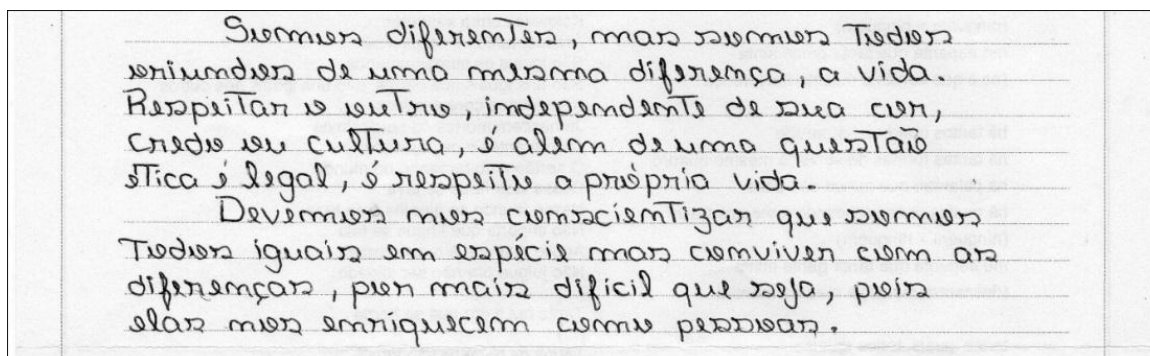 Somos diferentes, mas somos Todos
oriundos de uma mesma diferença, a vida.
Respeitar o outro, independente de sua cor,
credo ou cultura, é alem de uma questão
ética é legal, é respeito a própria vida.
Devemos nos conscientizar que somos
Todos iguais em espécie mas conviver com as
diferenças, por mais dificil que seja, pois
elas nos enriquecem como pessoas.